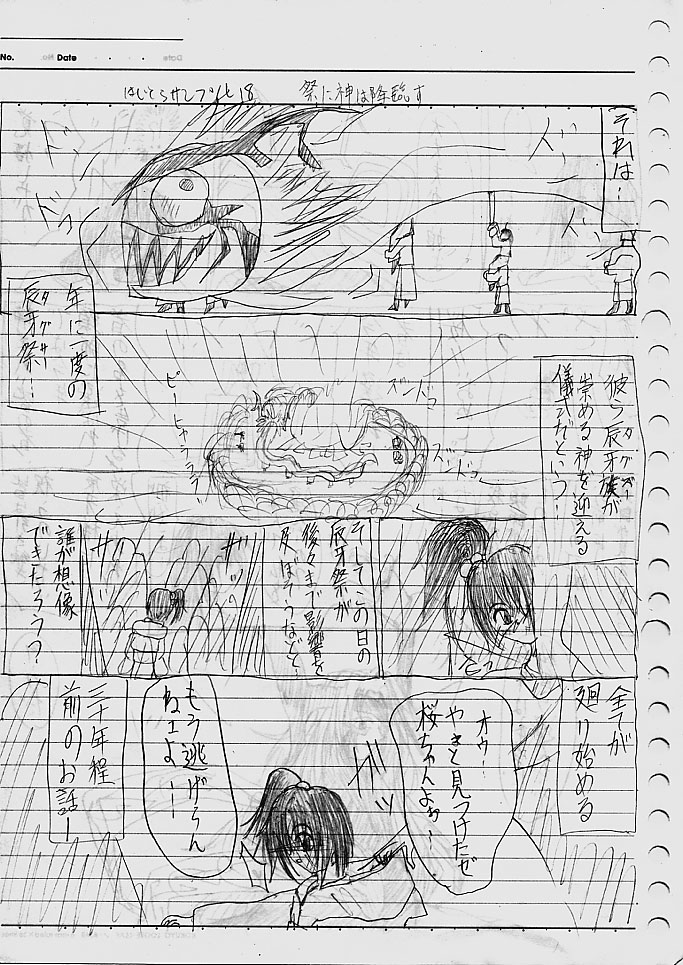 No.
Date
祭に神は降臨す
それは…
ドン
ドン
ドコ
年に一度の
辰牙祭…
タグサー
彼ら辰牙族が
タグガー
崇める神を迎える
儀式だという…
ズンドコ
ズンドコ
ピーヒャララララ
そしてこの日の
辰牙祭が
後々まで影響を
及ぼそうなどと…
ザッ
誰が想像
できたろう?
全てが
廻り始める
オウ…
やっと見つけたぜ
桜ちゃんよぉ…
ガッ
もう逃げらん
ねェよ――
三十年程
前のお話―